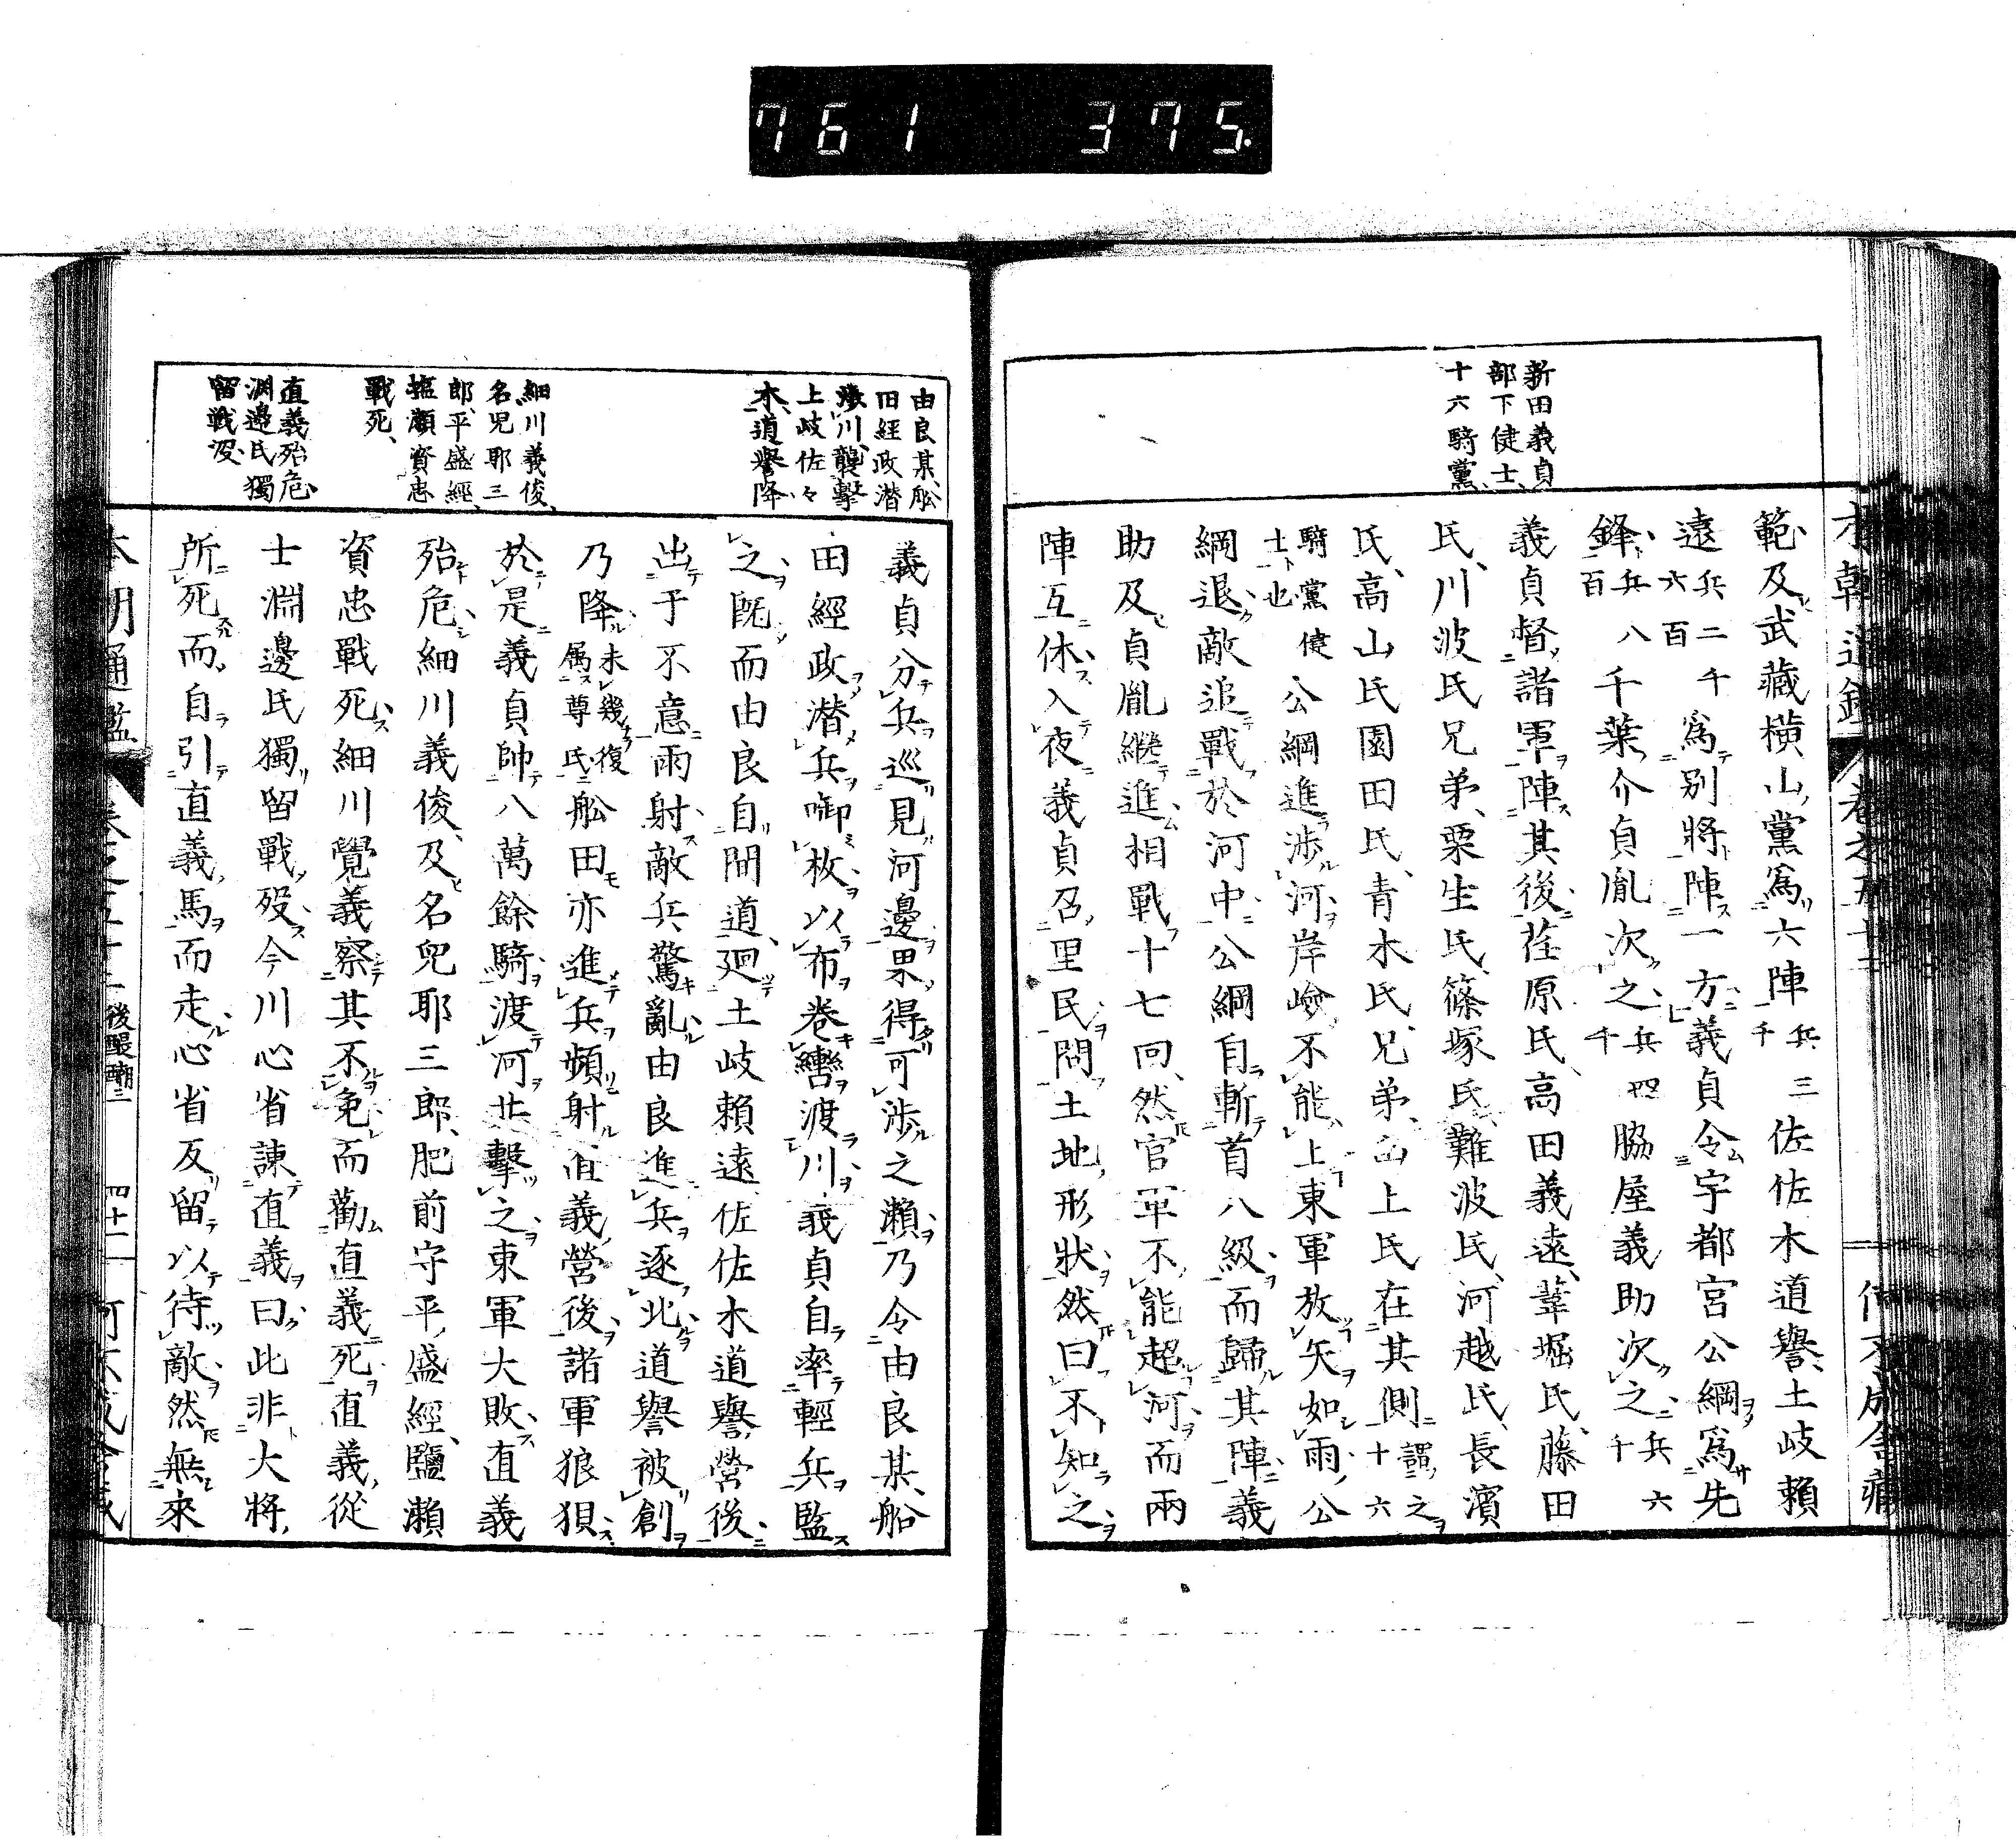 761 375.
新田義貞
部下健士
十六騎黨
範及武藏橫山黨爲六陣兵三千佐佐木道譽土岐賴
遠兵二千六百爲別將陣一方義貞令宇都宮公綱爲先
鋒兵八百千葉介貞胤次之兵四千脇屋義助次之兵六千
義貞督諸軍陣其後荏原氏高田義遠葦堀氏藤田
氏川波氏兄弟栗生氏篠塚氏難波氏河越氏長濱
氏高山氏園田氏青木氏兄弟山上氏在其側謂之十六
騎黨健士也公綱進渉河岸嶮不能上東軍放矢如雨公
綱退敵追戰於河中公綱自斬首八級而歸其陣義
助及貞胤繼進相戰十七回然官軍不能超河而兩
陣互休入夜義貞召里民問土地形狀然曰不知之
由良某舩
田經政潜
渉川襲擊
土岐佐々
木道譽降
細川義俊
名児耶三
郎平盛經
塩瀬資忠
戰死
直義殆危
淵邉氏獨
留戰没
義貞分兵巡見河邊果得可渉之瀨乃令由良某船
田經政潜兵啣枚以布卷轡渡川義貞自率輕兵監
之既而由良自間道廻土岐賴遠佐佐木道譽營後
出于不意雨射敵兵驚亂由良進兵逐北道譽被創
乃降未幾復属尊氏舩田亦進兵頻射直義營後諸軍狼狽
於是義貞帥八萬餘騎渡河共擊之東軍大敗直義
殆危細川義俊及名兒耶三郎肥前守平盛經鹽瀨
資忠戰死細川覺義察其不免而勸直義死直義從
士淵邊氏獨留戰歿今川心省諫直義曰此非大將
所死而自引直義馬而走心省反留以待敵然無來
本朝通鑑 卷之五十二 後醍醐三 四十二